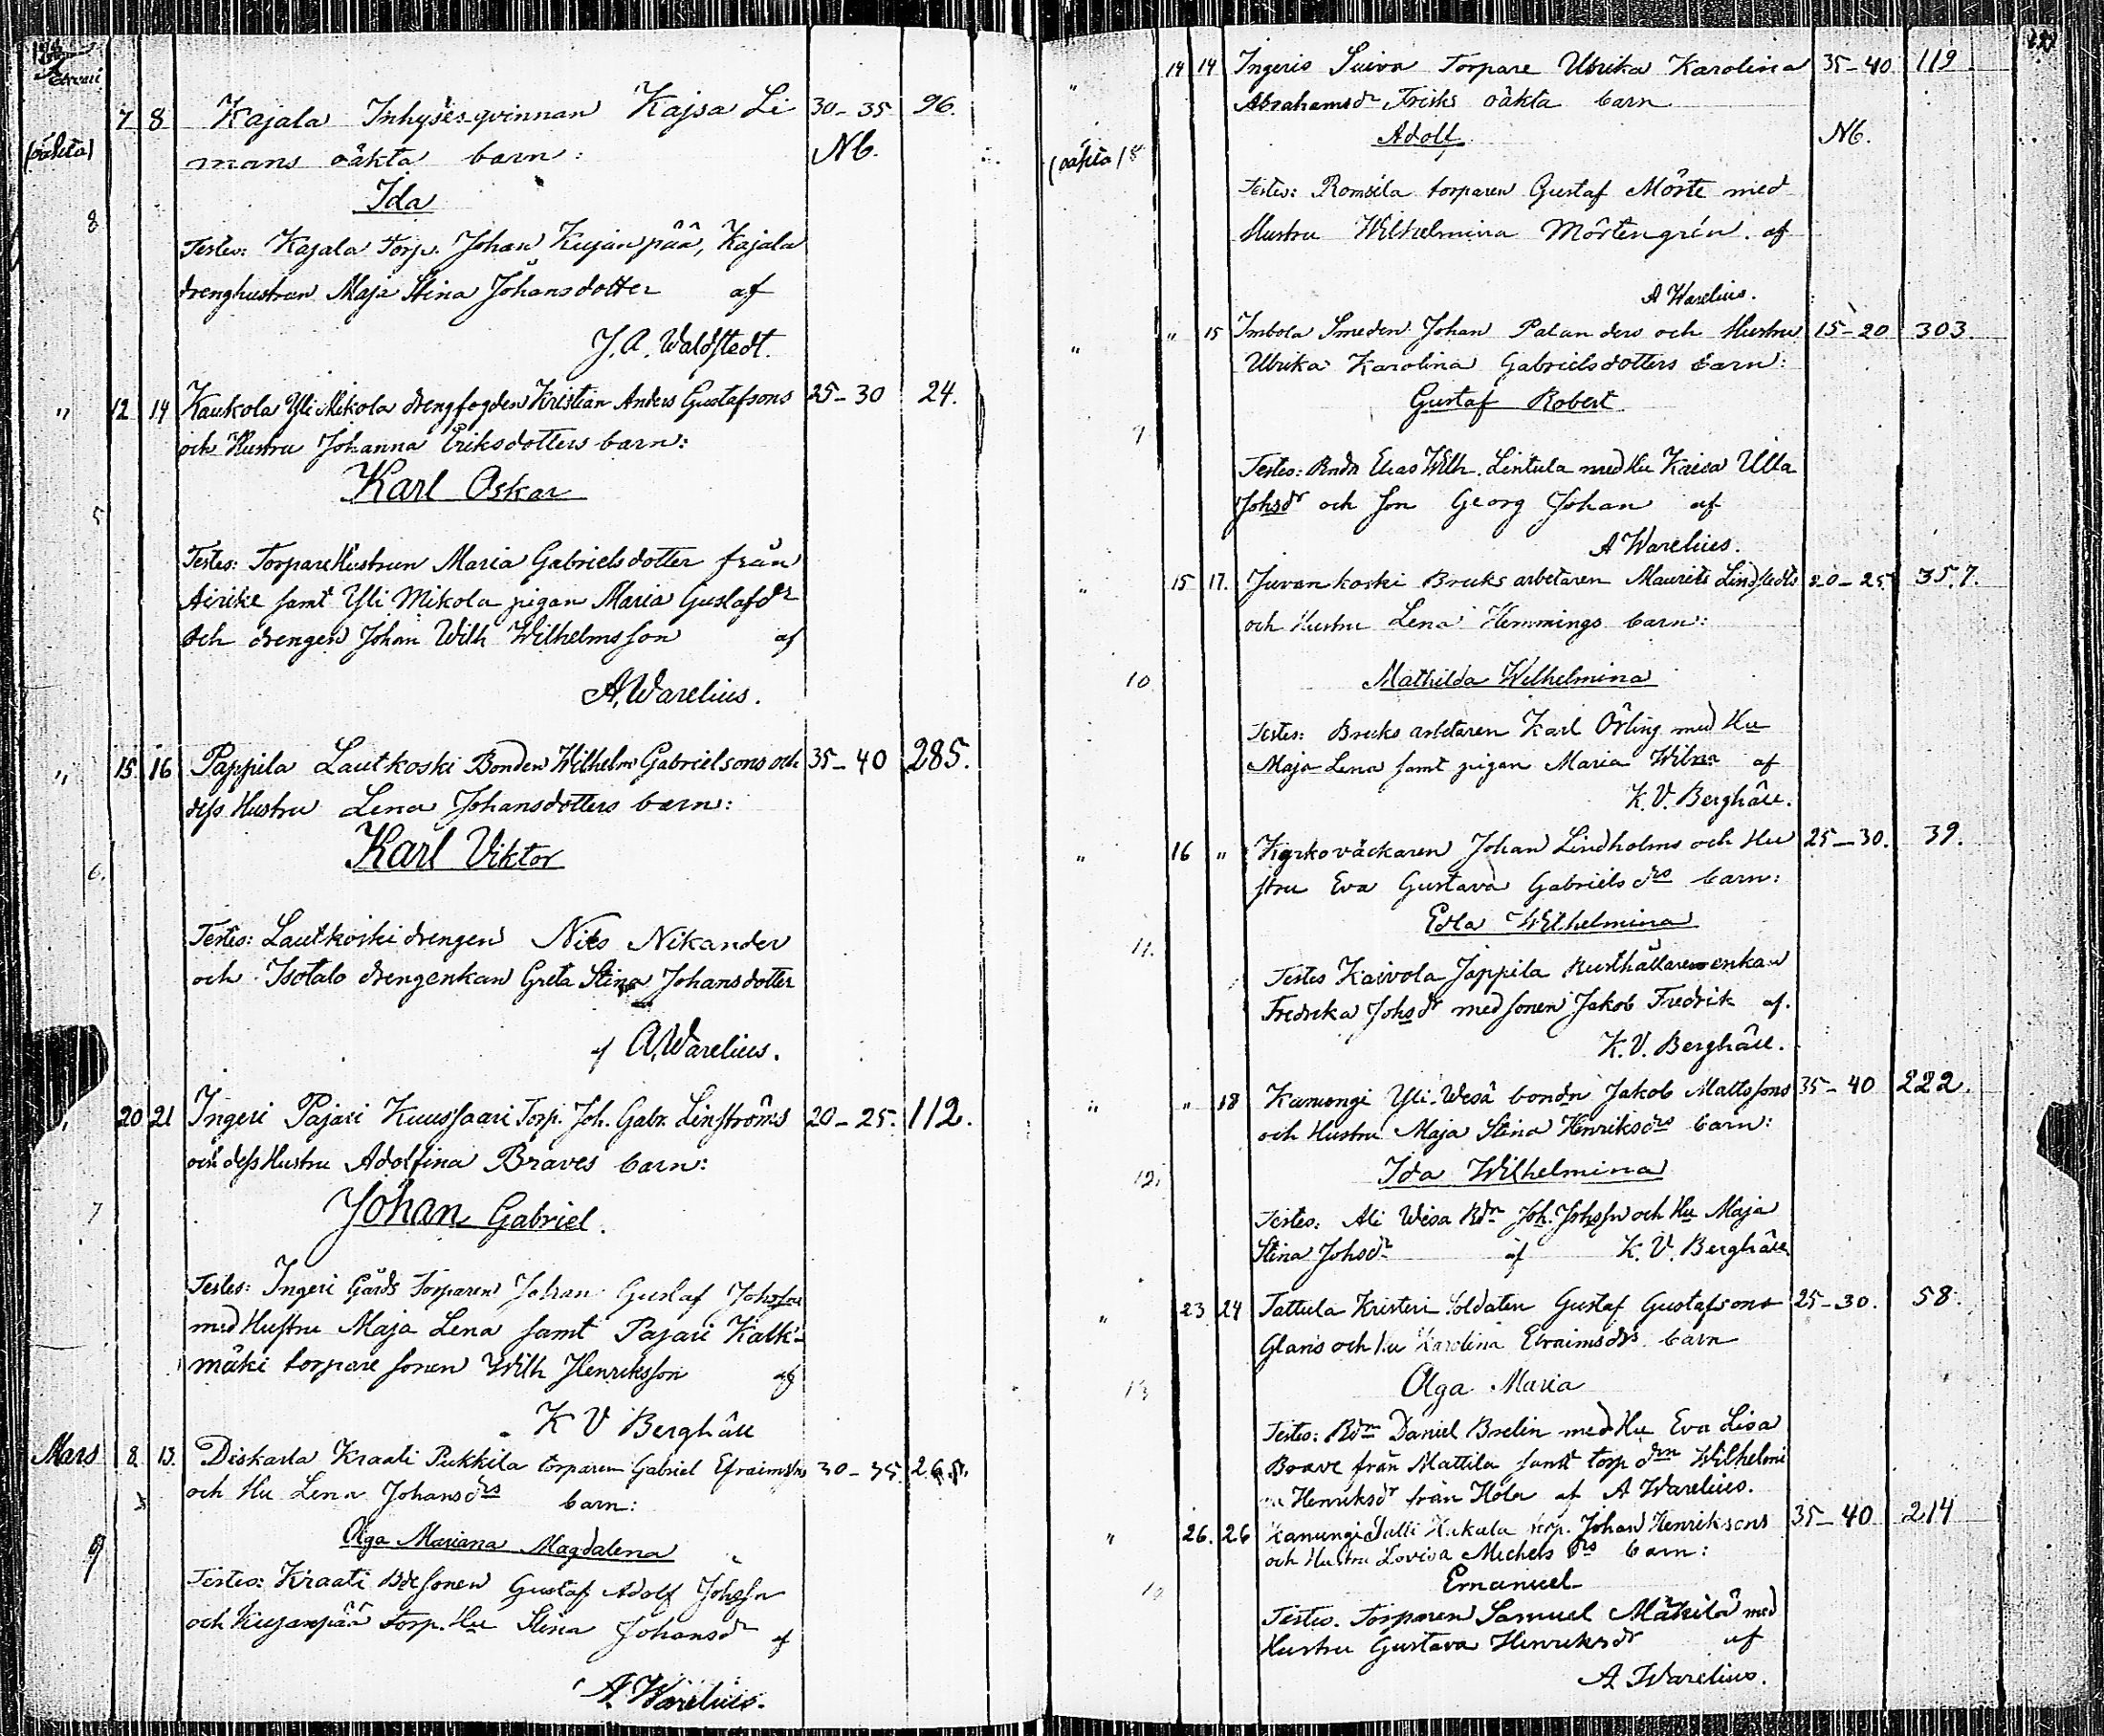 7 8 Kajala Inhyses-qvinnan Kajsa Li 30-35 96.
(oäkta) mans oäkta barn: Nb.
Ida
8
Testes: Kajala torp. Johan Kujanpää, Kajala
drenghustrun Maja Stina Johansdotter af
J. A. Waldstedt.
" 12 14 Kaukola Yli Mikola drengfogden Kristian Anders Gustafsons 25-30 24.
och Hustru Johanna Eriksdotters barn:
Karl Oskar
5
Testes: Torpare Hustrun Maria Gabrielsdotter från
Airike samt Yli Mikola pigan Maria Gustafdr
och drengen Johan Wilh Wilhelmsson af
A. Warelius.
" 15 16 Pappila Lautkoski Bonden Wilhelm Gabrielsons och 35-40 285.
dess Hustru Lena Johansdotters barn:
Karl Viktor
6.
Testes: Lautkoski drengen Nils Nikander
och Isotalo drengenkan Greta Stina Johansdotter
af A. Warelius.
" 20 21 Ingeri Pajari Kuussaari Torp. Joh. Gabr. Linströms 20-25. 112.
och dess Hustru Adolfina Braves barn:
Johan Gabriel.
7
Testes: Ingeri Gårds Torparen Johan Gustaf Johssn
med Hustru Maja Lena samt Pajari Kalk-
mäki torpare sonen Wilh Henriksson af
K V Berghäll
Mars 8. 13. Diskarla Kraati Pukkila torparen Gabriel Efraimss 30-35.
och Hu Lena Johansdrs barn:
Olga Mariana Magdalena
9
Testes: Kraati Bdesonen Gustaf Adolf Johssn
och Kujanpää torp. Hu Stina Johansdr af
A. Warelius.
" 14 14 Ingeris Suiva Torpare Ulrika Karolina 35-40 119
Abrahamsdr Frisks oäkta barn
Adolf Nb.
(oäkta) 8
Testes: Romsila torparen Gustaf Mörte med
Hustru Wilhelmina Mörtengrén. af
A Warelius.
" " 15 Imbola Smeden Johan Palanders och Hustru 15-20 303.
Ulrika Karolina Gabrielsdotters barn:
Gustaf Robert
9
Testes: Bndn Elias Wilh. Lintula med Hu Kaisa Ulla
Johsdr och son Georg Johan af
A Warelius.
" 15 17. Juvankoski Bruksarbetaren Maurits Lindstedts 20-25. 357.
och Hustru Lena Hemmings barn:
10 Mathilda Wilhelmina
Testes: Bruks arbetaren Karl Örling med Hu
Maja Lena samt pigan Maria Wilna af
K. V. Berghäll.
" 16 " Kyrkoväckaren Johan Lindholms och Hu 25-30. 39.
stru Eva Gustava Gabrielsdrs barn:
Edla Wilhelmina
11.
Testes Kaivola Jappila Rusthållareenkan
Fredrika Johsdr med sonen Jakob Fredrik af.
K. V. Berghäll.
" " 18 Kamungi Yli-Wesa bondn Jakob Mattssons 35-40 222.
och Hustru Maja Stina Henriksdrs barn:
12. Ida Wilhelmina
Testes: Ali Wesa Bdn Joh. Johssn och Hu Maja
Stina Johsdr af K. V. Berghäll
" 23 24 Tattula Kristeri Soldaten Gustaf Gustafsons 25-30. 58.
Glans och Hu Karolina Efraimsdrs barn
13 Olga Maria
Testes: Bdn Daniel Brelin med Hu Eva Lisa
Brave från Mattila samt torp drn Wilhelmi
na Henriksdr från Hola af A Warelius.
" 26. 26 Kamungi Jalli Kukula torp. Johan Henriksons 35-40 214
och Hustru Lovisa Michelsdrs barn:
Emanuel
Testes. Torparen Samuel Mäkilä med
Hustru Gustava Henriksdr af
A Warelius.